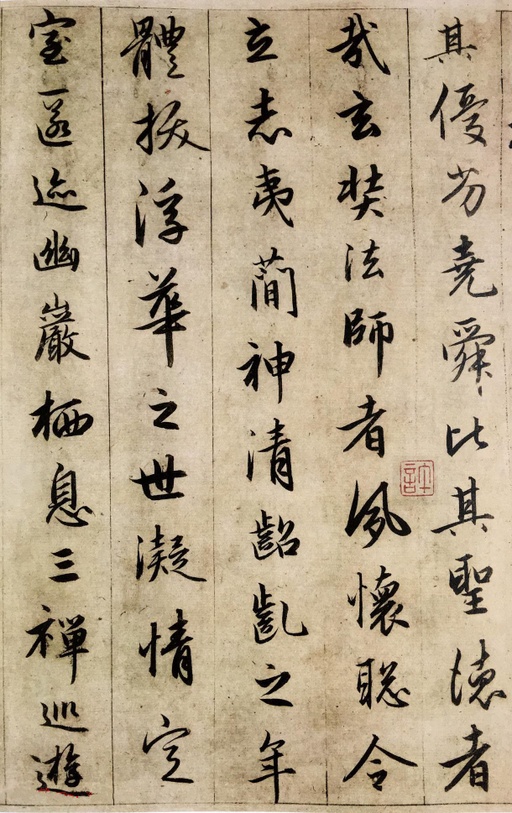 其優劣堯舜比其聖德者
哉玄奘法師者夙懷聰令
立志夷簡神清齠齔之年
體拔浮華之世凝情定
室匿迹幽巖栖息三禪巡遊
許